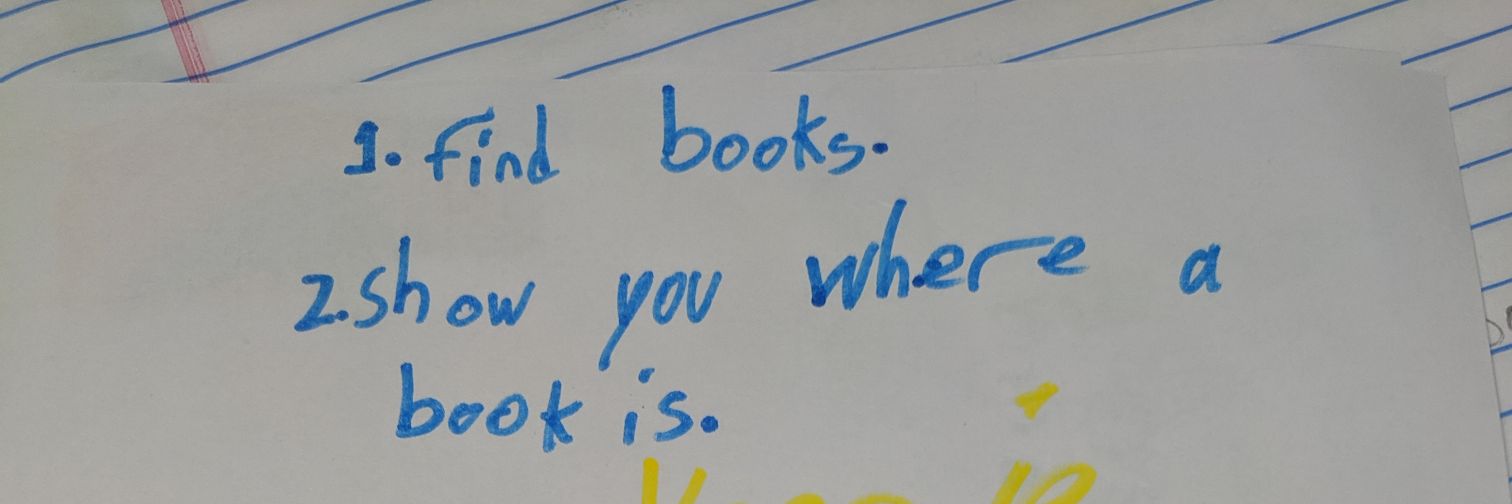 1. find books.
2. Show you where a
book is.